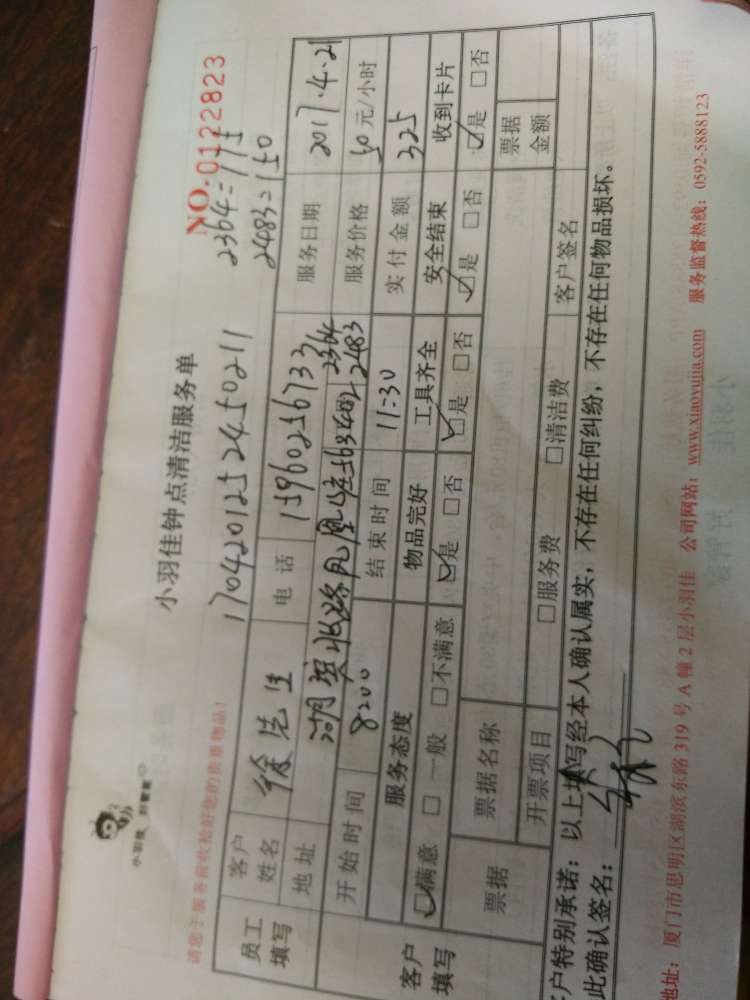 小羽佳 好管家
小羽佳钟点清洁服务单
NO.0122823
请您于服务前收拾好您的贵重物品!
1704201252450211
2364=175
2483=150
员工填写
客户姓名 徐先生 电话 15960256733 服务日期 2017.4.21
地址 湖滨北路凤凰 2364 2483 服务价格 50元/小时
开始时间 8:00 结束时间 11:30 实付金额 325
客户填写
服务态度 物品完好 工具齐全 安全结束 收到卡片
☑满意 □一般 □不满意 ☑是 □否 ☑是 □否 ☑是 □否 ☑是 □否
票据 票据名称 票据金额
开票项目 □服务费 □清洁费 客户签名
客户特别承诺:以上填写经本人确认属实,不存在任何纠纷,不存在任何物品损坏。
此确认签名:
地址:厦门市思明区湖滨东路319号A幢2层小羽佳 公司网站:www.xiaoyujia.com 服务监督热线:0592-5888123